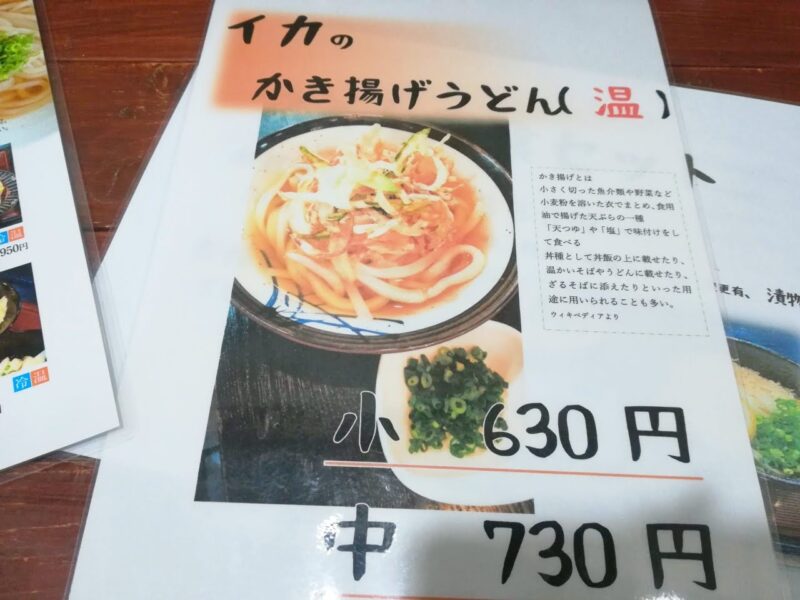 イカの
かき揚げうどん(温)
かき揚げとは
小さく切った魚介類や野菜など
小麦粉を溶いた衣でまとめ、食用
油で揚げた天ぷらの一種
「天つゆ」や「塩」で味付けをし
て食べる
丼種として丼飯の上に載せたり、
温かいそばやうどんに載せたり、
ざるそばに添えたりといった用
途に用いられることも多い。
ウィキペディアより
小 630円
中 730円
冷温
950円
冷温
更有、漬物